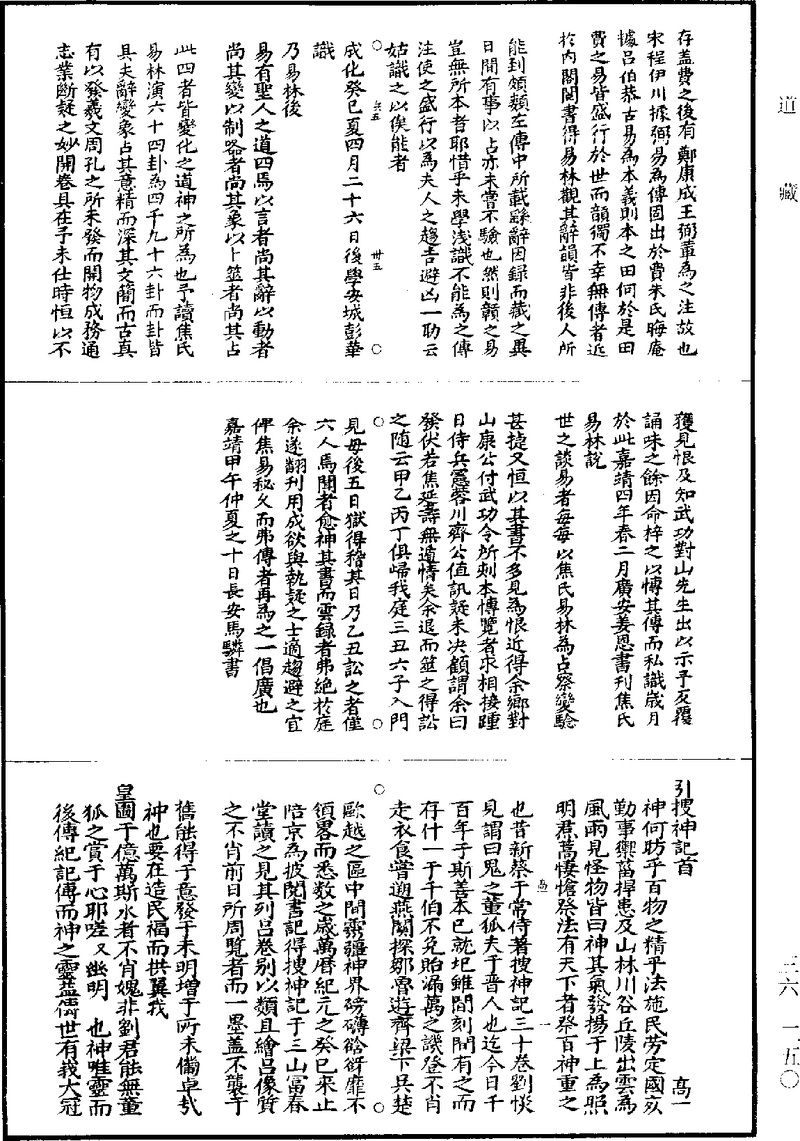 道藏
三六—二五〇
存蓋費之後有鄭康成王弼輩為之注故也
宋程伊川據弼易為傳固出於費朱氏晦庵
據呂伯恭古易為本義則本之田何於是田
費之易皆盛行於世而韻獨不幸無傳者近
於內閣閱書得易林觀其辭韻皆非後人所
能到領類左傳中所載繇辭因錄而藏之異
日間有事以占亦未嘗不驗也然則贛之易
豈無所本者耶惜乎末學淺識不能為之傳
注使之盛行以為夫人之趨吉避凶一助云
姑識之以俟能者
成化癸巳夏四月二十六日後學安城彭華
識
乃易林後
易有聖人之道四焉以言者尚其辭以動者
尚其變以制器者尚其象以卜筮者尚其占
此四者皆變化之道神之所為也予讀焦氏
易林演六十四卦為四千九十六卦而卦皆
具夫辭變象占其意精而深其文簡而古真
有以發羲文周孔之所未發而開物成務通
志業斷疑之妙開卷具在予未仕時恒以不
獲見恨及知武功對山先生出以示予反覆
誦味之餘因命梓之以博其傳而私識歲月
於此嘉靖四年春二月廣安姜恩書刊焦氏
易林說
世之談易者每每以焦氏易林為占察變驗
甚捷又恒以其書不多見為恨近得余鄉對
山康公付武功令所刻本傳覽者求相接踵
日侍兵憲蓉川齊公值訊疑未決顧謂余曰
發伏若焦延壽無遁情矣余退而筮之得訟
之隨云甲乙丙丁俱歸我庭三丑六子入門
見母後五日獄得稽其日乃乙丑訟之者僅
六人焉聞者愈神其書而雲錄者弗絕於庭
余遂翻刊用成欲與執疑之士適趨避之宜
俾焦易秘久而弗傳者再為之一倡廣也
嘉靖甲午仲夏之十日長安馬驎書
引搜神記首
高一
神何昉乎百物之精乎法施民勞定國死
勤事禦菑捍患及山林川谷丘陵出雲為
風雨見怪物皆曰神其氣發揚于上為照
明焄蒿悽愴祭法有天下者祭百神重之
也昔新蔡于常侍著搜神記三十卷劉惔
見謂曰鬼之董狐夫于晉人也迄今日千
百年于斯善本已就圯雖間刻間有之而
存什一于千伯不免貽漏萬之譏登不肖
走衣食嘗遡燕關探鄒魯遊齊梁下吳楚
歐越之區中間霛疆神界磅礴谽谺靡不
領畧而悉数之歲萬曆紀元之癸巳來止
陪京為披閱書記得搜神記于三山富春
堂讀之見其列吕卷别以類且繪吕像質
之不肖前日所周覧者而一墨盖不襲于
舊能得于意發于未明增于所未備卓㦲
神也要在造民福而拱翼我
皇圖于億萬斯水者不肖媿非劉君能無董
狐之賞于心耶嗟又幽明也神唯靈而
後傳紀記傳而神之靈益俻世有我大冠